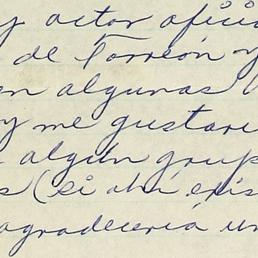 y actor afici
de Torreón y
en algunas
y me gustarí
algún grup
s (si ahí exis
agradecería un